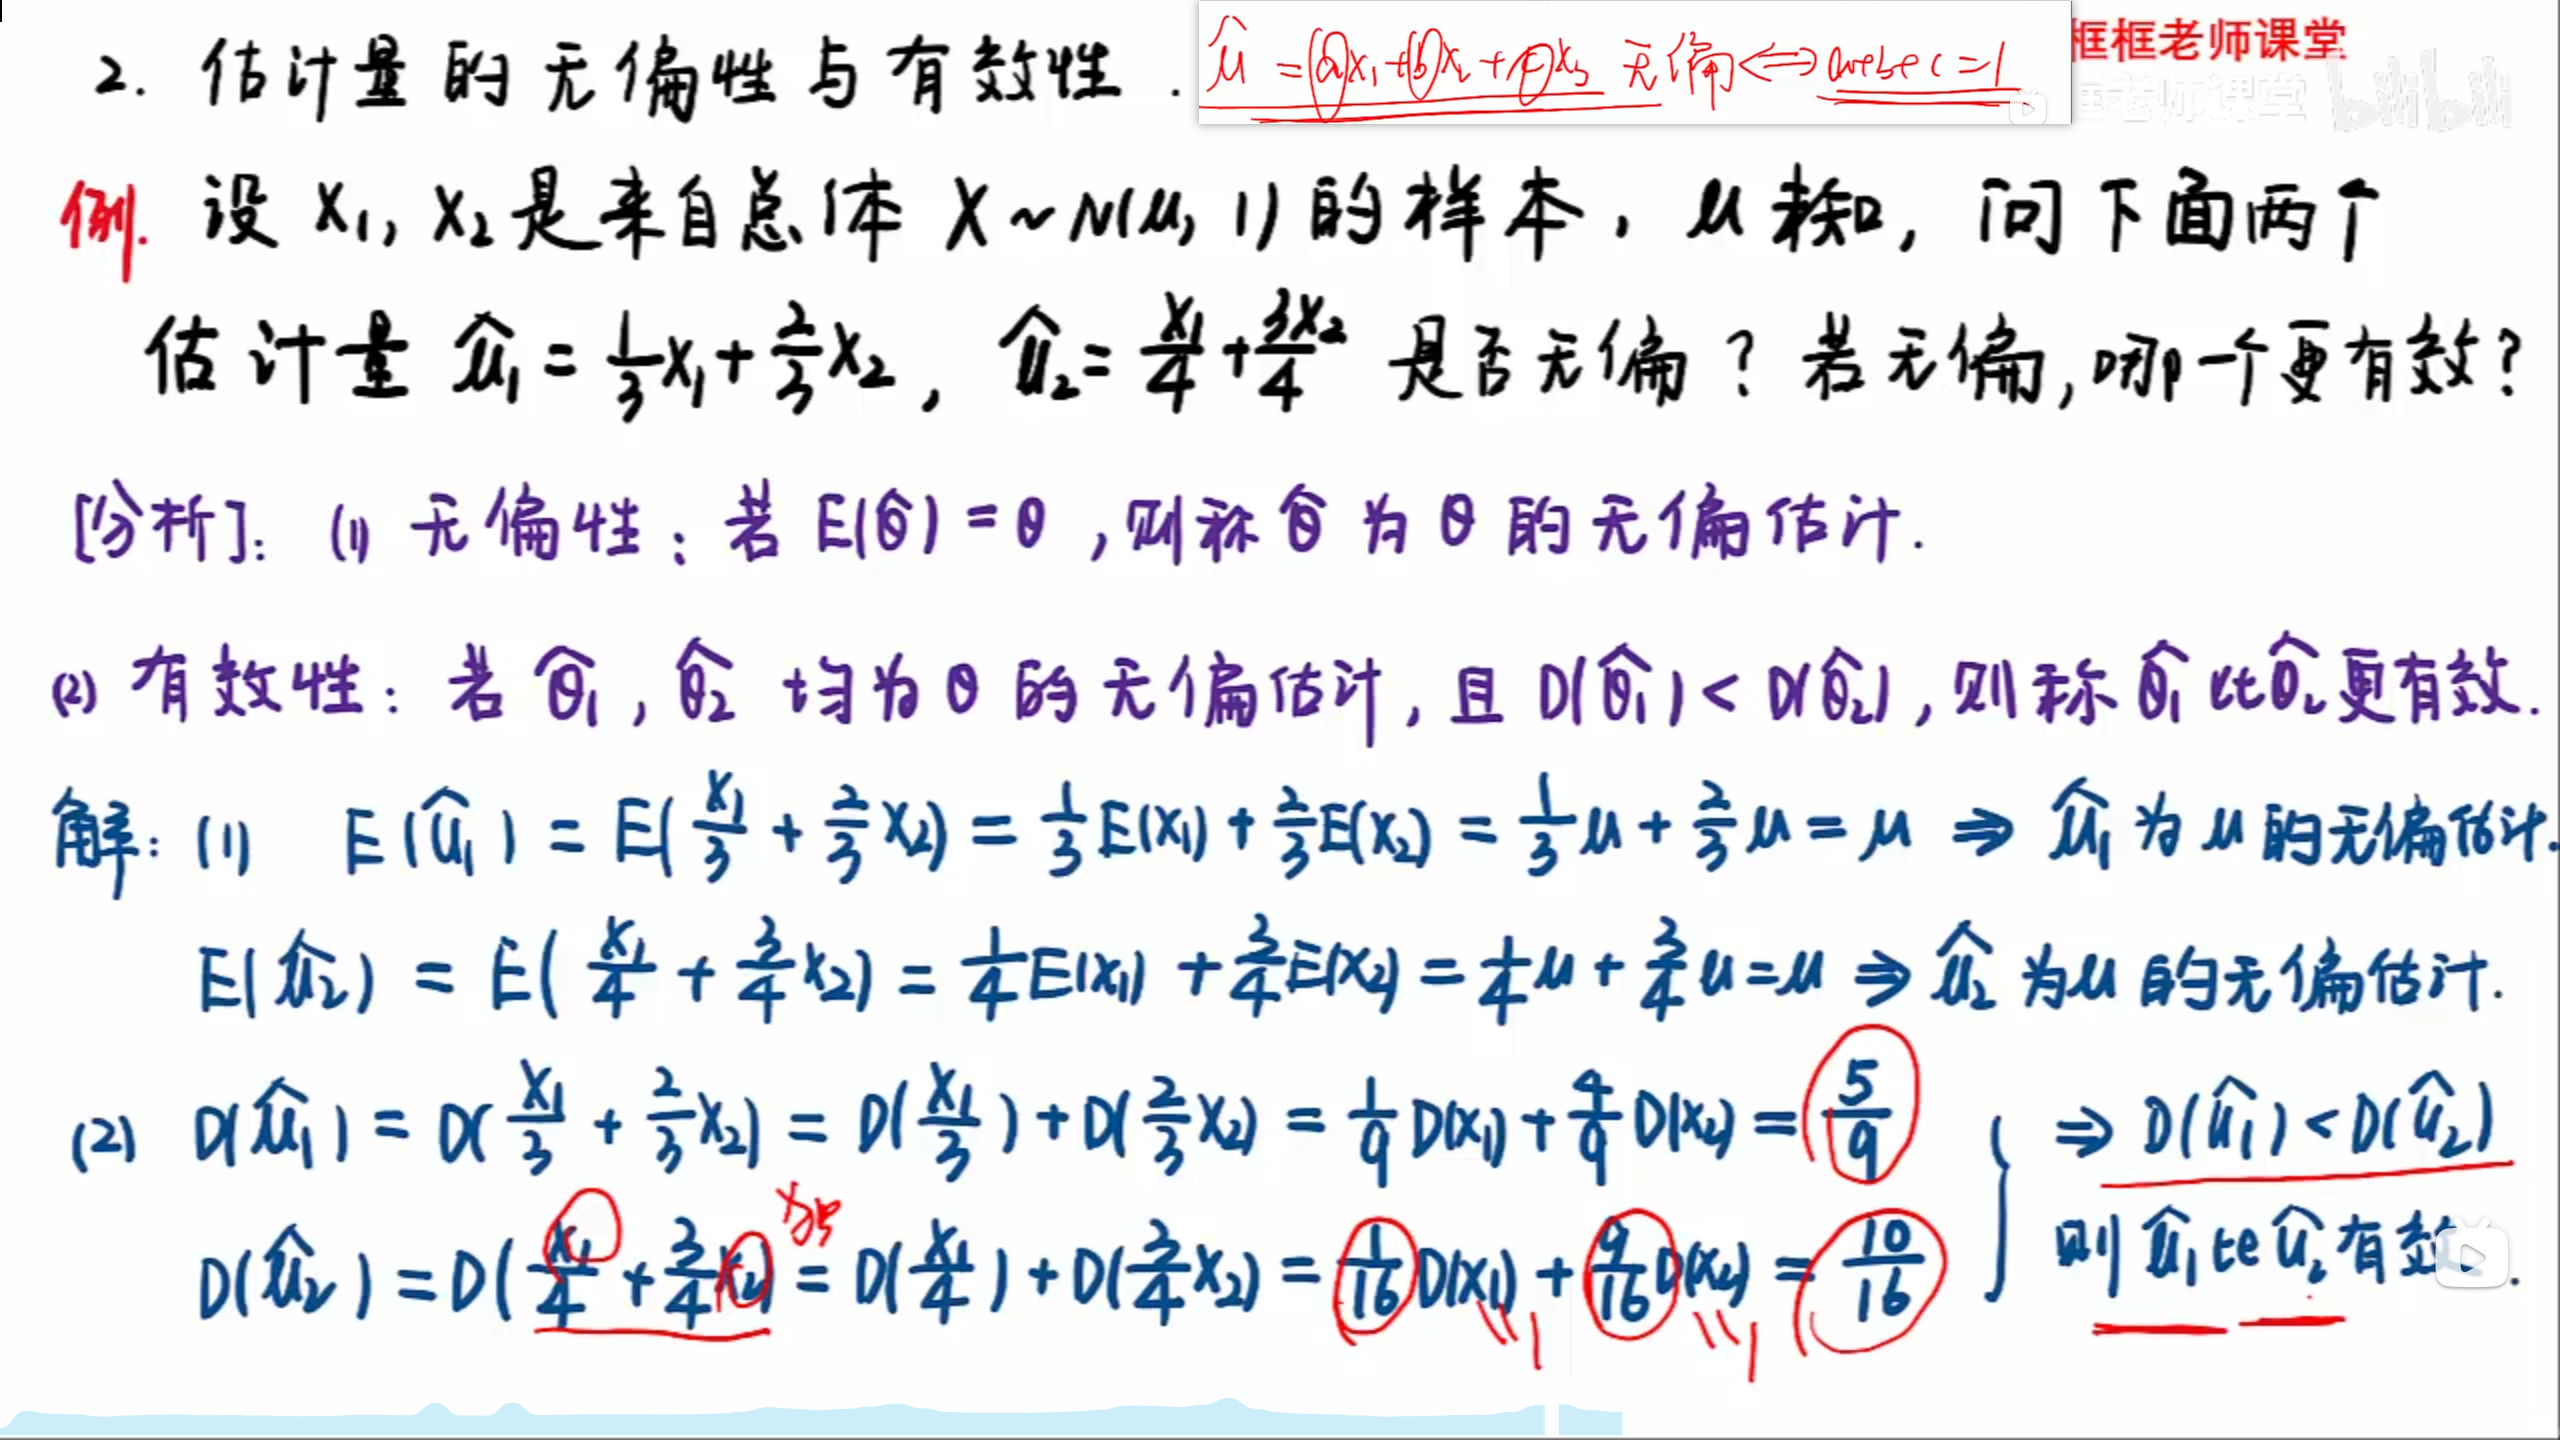 2. 估计量的无偏性与有效性.
μ̂ = ax₁+bx₂+cx₃ 无偏 ⟺ a+b+c=1
框框老师课堂
框老师课堂 bilibili
例. 设 X₁, X₂ 是来自总体 X ~ N(μ, 1) 的样本, μ 未知, 问下面两个
估计量 μ̂₁ = 1/3 X₁ + 2/3 X₂, μ̂₂ = X₁/4 + 3X₂/4 是否无偏? 若无偏, 哪一个更有效?
[分析]: (1) 无偏性: 若 E(θ̂) = θ, 则称 θ̂ 为 θ 的无偏估计.
(2) 有效性: 若 θ̂₁, θ̂₂ 均为 θ 的无偏估计, 且 D(θ̂₁) < D(θ̂₂), 则称 θ̂₁ 比 θ̂₂ 更有效.
解: (1) E(μ̂₁) = E(X₁/3 + 2/3 X₂) = 1/3 E(X₁) + 2/3 E(X₂) = 1/3 μ + 2/3 μ = μ ⇒ μ̂₁ 为 μ 的无偏估计.
E(μ̂₂) = E(X₁/4 + 3/4 X₂) = 1/4 E(X₁) + 3/4 E(X₂) = 1/4 μ + 3/4 μ = μ ⇒ μ̂₂ 为 μ 的无偏估计.
(2) D(μ̂₁) = D(X₁/3 + 2/3 X₂) = D(X₁/3) + D(2/3 X₂) = 1/9 D(X₁) + 4/9 D(X₂) = 5/9
⇒ D(μ̂₁) < D(μ̂₂)
D(μ̂₂) = D(X₁/4 + 3/4 X₂) = D(X₁/4) + D(3/4 X₂) = 1/16 D(X₁) + 9/16 D(X₂) = 10/16
则 μ̂₁ 比 μ̂₂ 有效.
"1 "1